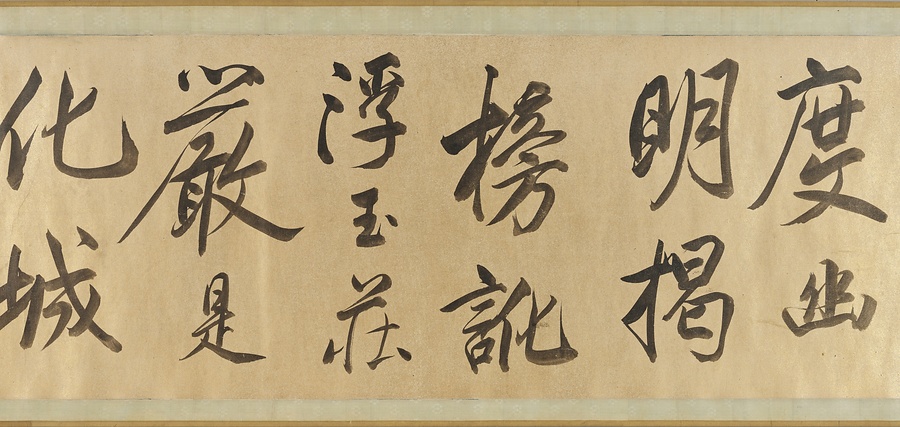 度幽
明揭
榜訛
浮玉莊
嚴是
化城